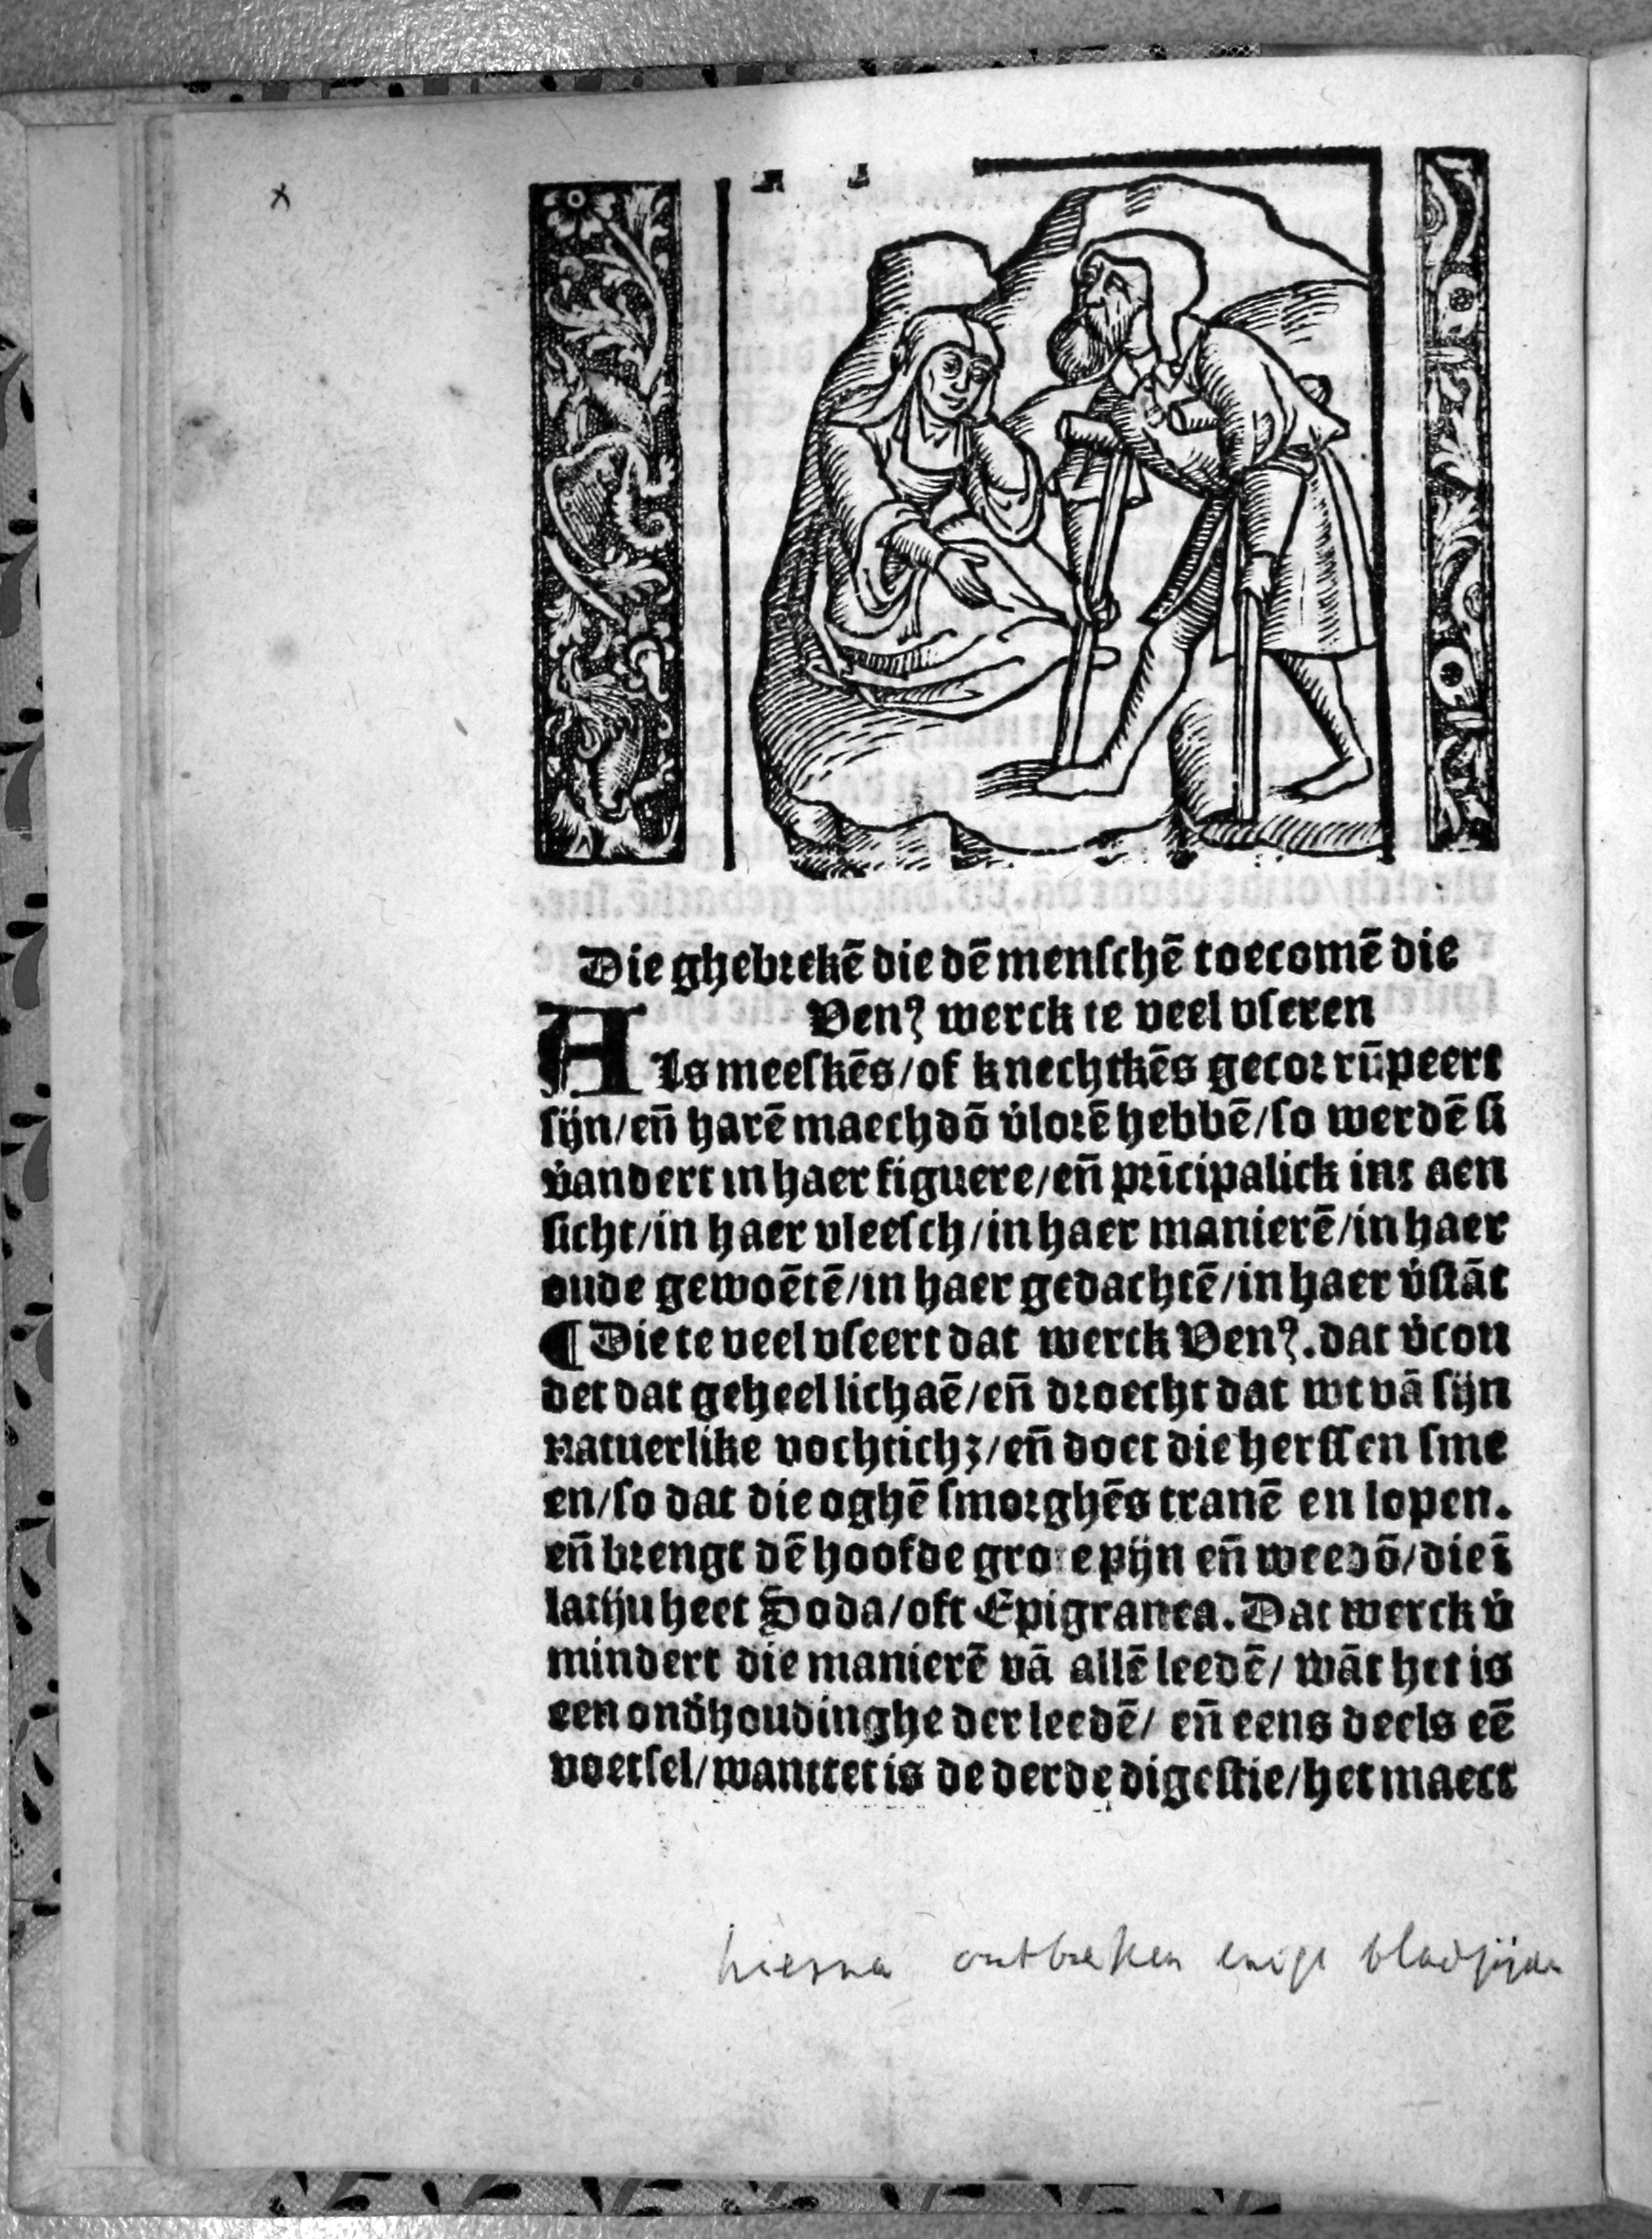 x
Die ghebrekē die dē menschē toecomē die
Ven⁊ werck te veel vseren
Als meeskēs/of knechtkēs gecorrūpeert
sijn/eñ harē maechdō v̾lorē hebbē/so werdē si
v̾andert in haer figuere/eñ prīcipalick int aen
sicht/in haer vleesch/in haer manierē/in haer
oude gewoētē/in haer gedachtē/in haer v̾stāt
¶ Die te veel vseert dat werck Ven⁊. dat v̾con
det dat geheel lichaē/eñ droecht dat wt vā sijn
natuerlike vochtichꝫ/eñ doet die herssen sme
en/so dat die oghē smorghēs tranē en lopen.
eñ brengt dē hoofde grote pijn eñ weedō/die ī
latiju heet Soda/oft Epigranea. Dat werck v̾
mindert die manierē vā allē leedē/ wāt het is
een ond̾houdinghe der leedē/ eñ eens deels eē
voetsel/wanttet is de derde digestie/het maect
hierna ontbreken enige bladzijden